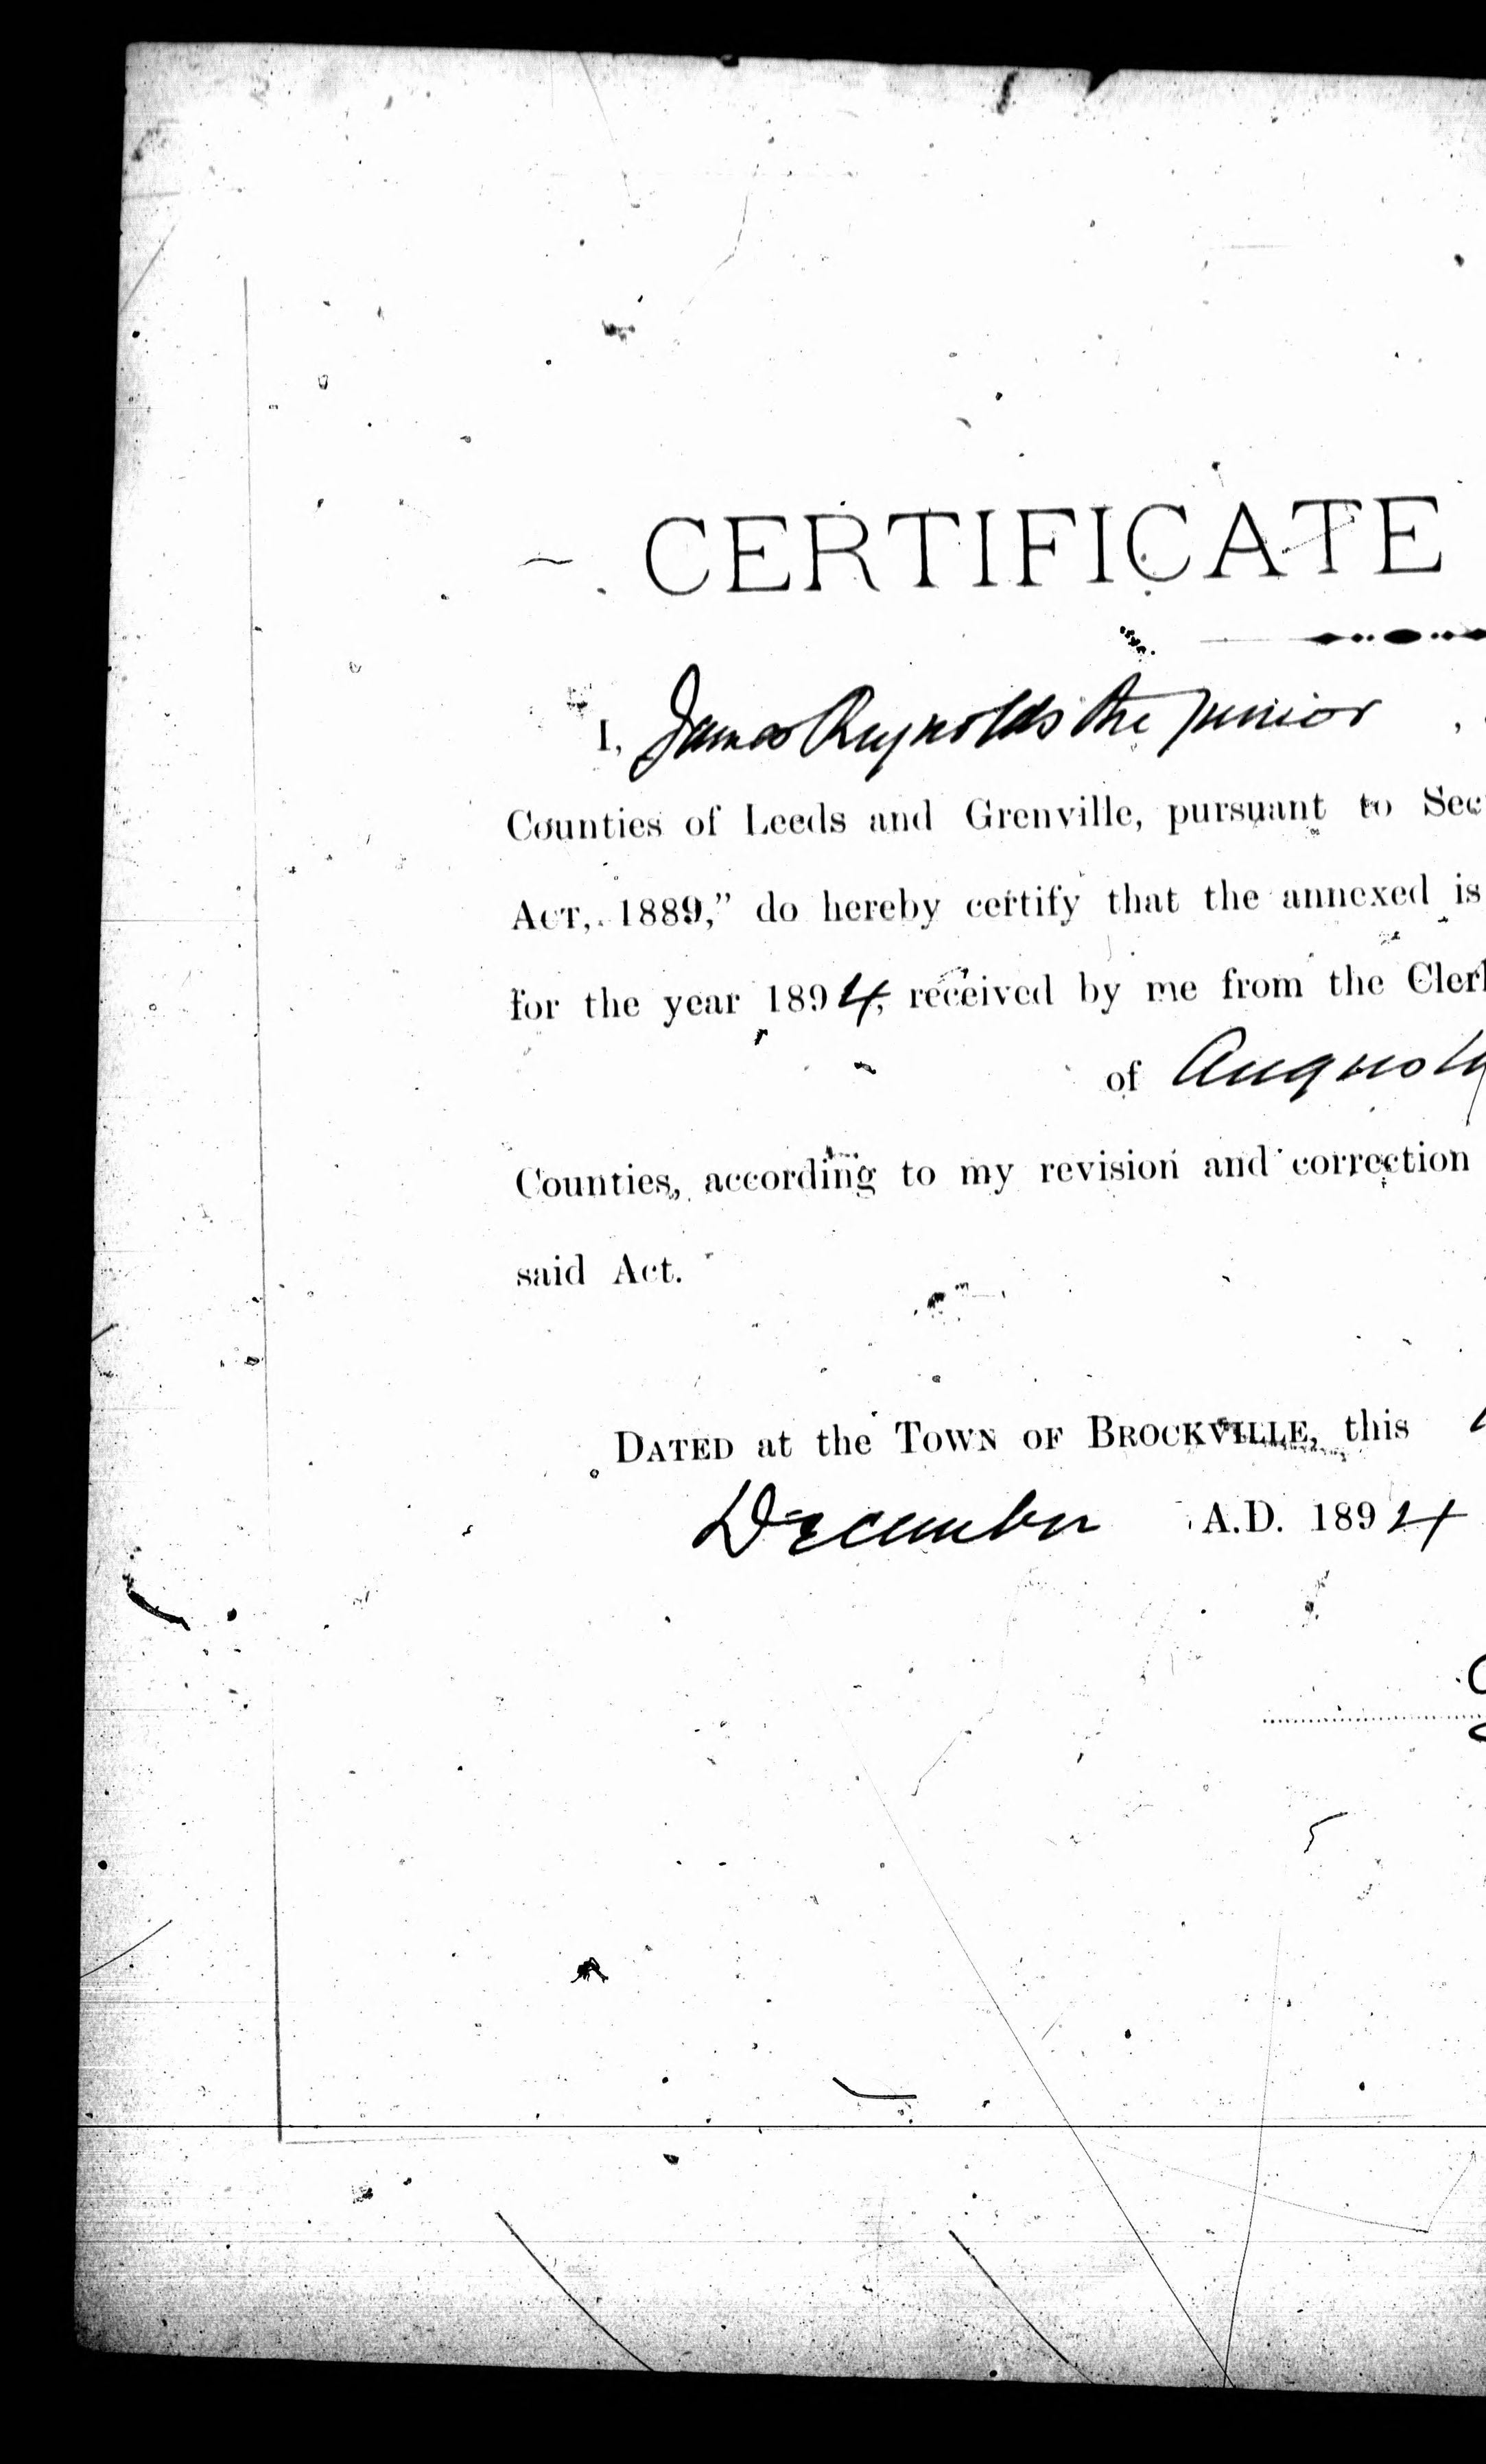 CERTIFICATE
I, James Reynolds the junior ,
Counties of Leeds and Grenville, pursuant to Sec
ACT, 1889,” do hereby certify that the annexed is
for the year 1894, received by me from the Clerk
of Augusta
Counties, according to my revision and correction
said Act.
DATED at the TOWN OF BROCKVILLE, this
December A.D. 1894